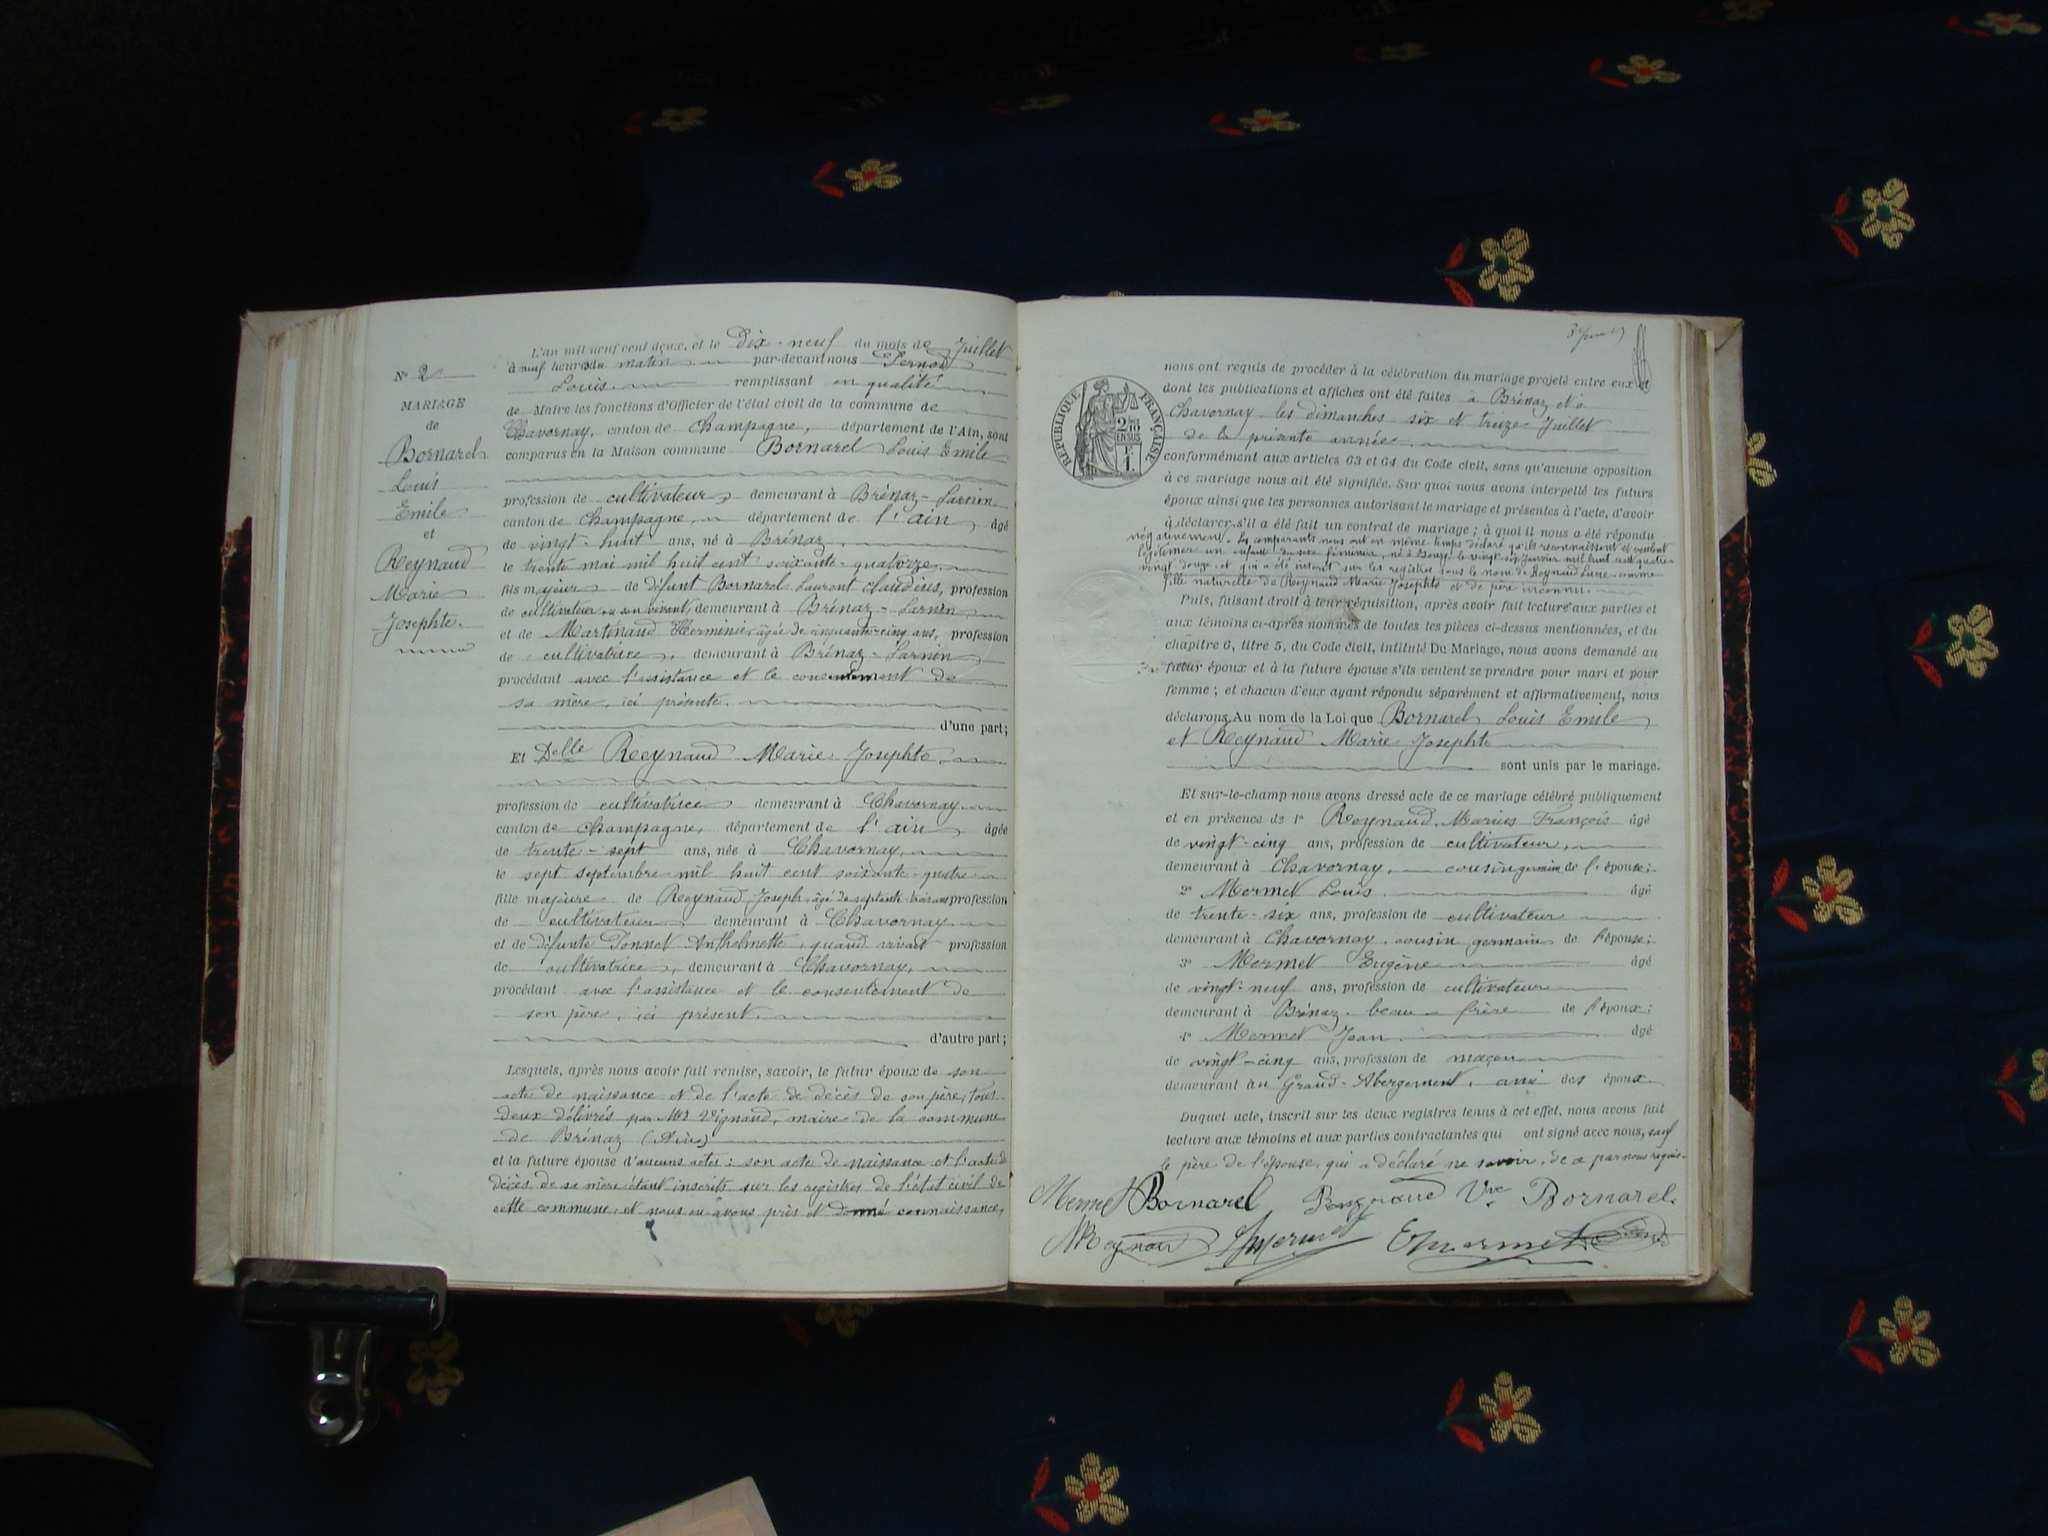 N° 2
MARIAGE
de
Bornarel
Louis
Emile
et
Reynaud
Marie
Josephte.
L'an mil neuf cent deux, et le Dix-neuf du mois de Juillet
à neuf heures du matin par-devant nous
Louis. remplissant en qualité
de Maire les fonctions d'Officier de l'état civil de la commune de
Chavornay, canton de Champagne, département de l'Ain, sont
comparus en la Maison commune Bornarel Louis Emile
profession de cultivateur, demeurant à Brénaz-Larnin
canton de Champagne, département de l'ain, âgé
de vingt-huit ans, né à Brénaz,
le trente mai mil huit cent soixante-quatorze,
fils majeur de défunt Bornarel Laurent Claudius, profession
de cultivateur en son vivant, demeurant à Brénaz-Larnin,
et de Martinaud Herminie, âgée de cinquante-cinq ans, profession
de cultivatrice, demeurant à Brénaz-Larnin
procédant avec l'assistance et le consentement de
sa mère, ici présente.
d'une part;
Et Delle Reynaud Marie Josephte,
profession de cultivatrice demeurant à Chavornay
canton de Champagne, département de l'ain âgée
de trente-sept ans, née à Chavornay,
le sept septembre mil huit cent soixante-quatre
fille majeure de Reynaud Joseph, âgé de septante-trois ans profession
de cultivateur, demeurant à Chavornay
et de défunte Tonnet Anthelmette, quand vivait profession
de cultivatrice, demeurant à Chavornay,
procédant avec l'assistance et le consentement de
son père, ici présent.
d'autre part;
Lesquels, après nous avoir fait remise, savoir, le futur époux de son
acte de naissance et de l'acte de décès de son père, tous
deux délivrés par Mr Vignand, maire de la commune
de Brénaz (Ain)
et la future épouse d'aucuns actes: son acte de naissance et l'acte de
décès de sa mère étant inscrits sur les registres de l'état civil de
cette commune, et nous en avons pris et donné connaissance,
RÉPUBLIQUE FRANÇAISE
2/10 EN SUS
nous ont requis de procéder à la célébration du mariage projeté entre eux et
dont les publications et affiches ont été faites à Brénaz et à
Chavornay les dimanches six et treize Juillet
de la présente année.
conformément aux articles 63 et 64 du Code civil, sans qu'aucune opposition
à ce mariage nous ait été signifiée. Sur quoi nous avons interpellé les futurs
époux ainsi que les personnes autorisant le mariage et présentes à l'acte, d'avoir
à déclarer s'il a été fait un contrat de mariage; à quoi il nous a été répondu
négativement. Les comparants nous ont en même temps déclaré qu'ils reconnaissent et veulent
légitimer un enfant du sexe féminin, né à Bourg le vingt-six Janvier mil huit cent quatre-
vingt-douze et qui a été inscrit sur les registres sous le nom de Reynaud comme
fille naturelle de Reynaud Marie Josephte et de père inconnu.
Puis, faisant droit à leur réquisition, après avoir fait lecture aux parties et
aux témoins ci-après nommés de toutes les pièces ci-dessus mentionnées, et du
chapitre 6, titre 5, du Code civil, intitulé Du Mariage, nous avons demandé au
futur époux et à la future épouse s'ils veulent se prendre pour mari et pour
femme; et chacun d'eux ayant répondu séparément et affirmativement, nous
déclarons Au nom de la Loi que Bornarel Louis Emile
et Reynaud Marie Josephte
sont unis par le mariage.
Et sur-le-champ nous avons dressé acte de ce mariage célébré publiquement
et en présence de 1° Reynaud Marius François âgé
de vingt-cinq ans, profession de cultivateur,
demeurant à Chavornay, cousin germain de l'épouse;
2° Mermet Louis âgé
de trente-six ans, profession de cultivateur
demeurant à Chavornay, cousin germain de l'épouse;
3° Mermet Eugène âgé
de vingt-neuf ans, profession de cultivateur
demeurant à Brénaz, beau-frère de l'époux;
4° Mermet Jean âgé
de vingt-cinq ans, profession de maçon
demeurant au Grand-Abergement, ami des époux.
Duquel acte, inscrit sur les deux registres tenus à cet effet, nous avons fait
lecture aux témoins et aux parties contractantes qui ont signé avec nous, sauf
le père de l'épouse, qui a déclaré ne savoir, de ce par nous requis.
Mermet Bornarel Reynaud Vve Bornarel
MReynaud LMermet EMermet